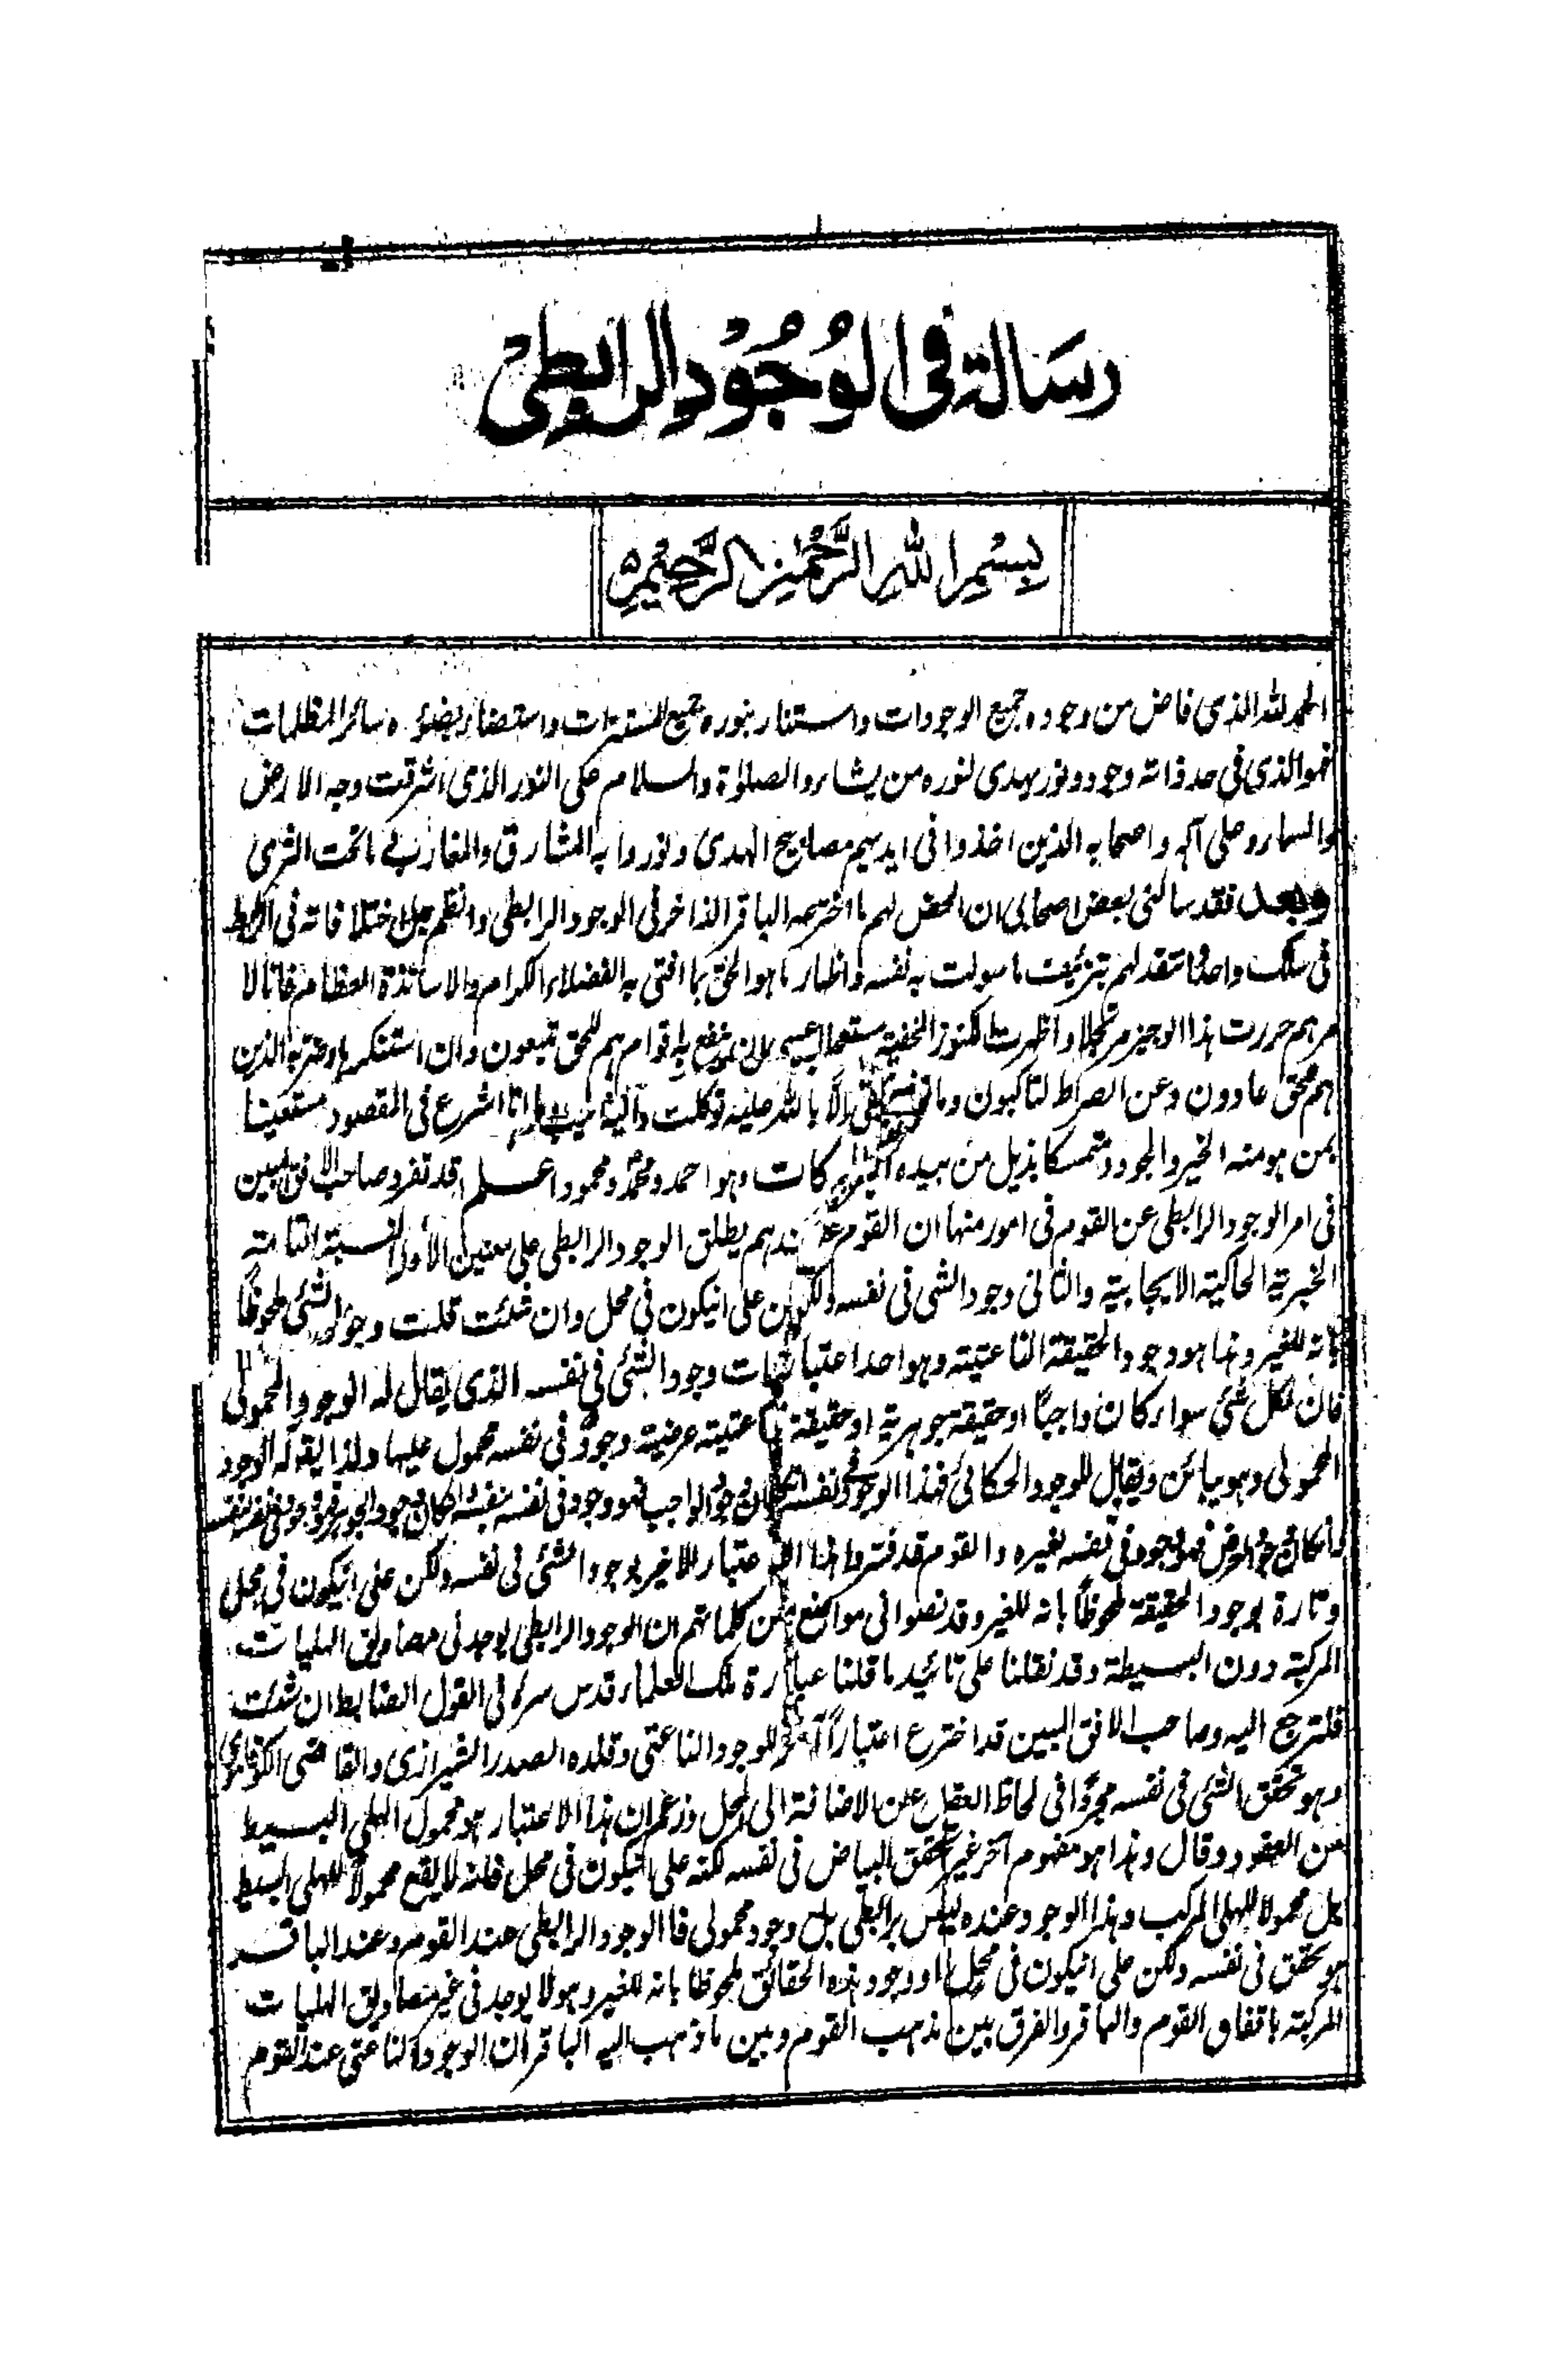 رسالة فى الوُجُوْد الرابطىْ
بِسْمِ اللهِ الرَّحْمٰنِ الرَّحِيْمِ
الحمد لله الذى فاض من وجوده جميع الوجودات واستنار بنوره جميع المستنيرات واستضاء بضوئه سائر المظلمات
فهو الذى فى حد ذاته وجود ونور يهدى لنوره من يشاء والصلوٰة والسلام على النور الذى اشرقت وجه الارض
والسماء وعلى آله واصحابه الذين اخذوا فى ايديهم مصابيح الهدى ونوروا به المشارق والمغارب ما تحت الثرى
وبعد فقد سالنى بعض اصحابى ان الخص لهم ما اخترعه الباقر الذاخر فى الوجود الرابطى وانظم جل اختلافاته فى
فى سلك واحد تنقد لهم بتزئيف ما سولت به نفسه واظهار ما هو الحق بما افتى به الفضلاء الكرام والاساتذة العظام فانا لا
مرهم حررت هذا الوجيز مرتجلا واظهرت الكنوز الخفية ان ينفع به اقوام هم للحق متبعون وان استنكر
هم عن الحق عادون وعن الصراط لناكبون وما توفيقى الا بالله عليه توكلت واليه انيب انا اشرع فى المقصود مستعينا
بمن هو منه الخير والجود ومتمسكا بذيل من بيده البركات وهو احمد ومحمد ومحمود اعلم قد تفرد صاحب الافق المبين
فى امر الوجود الرابطى عن القوم فى امور منها ان القوم عندهم يطلق الوجود الرابطى على معنيين الأول النسبة التامة
الخبرية الحاكية الايجابية والثانى وجود الشى فى نفسه ولكن على ان يكون فى محل وان شئت قلت وجود الشئ ملحوظًا
بانه للغير وهما هو وجود الحقيقة الناعتية وهو احد اعتبارات وجود الشئ فى نفسه الذى يقال له الوجود المحمولى
فان لكل شئ سواء كان واجبًا او حقيقة جوهرية او حقيقة ناعتية عرضية وجودًا فى نفسه محمول عليها ولذا يقال له الوجود
المحمولى وهو يبائن ويقابل للوجود الحكائى فهذا الوجود فى نفسه ان كان وجود الواجب فهو وجود فى نفسه بنفسه وان كان وجود الجوهر فهو وجود فى نفسه لنفسه
وان كان وجود العرض فهو وجود فى نفسه لغيره والقوم قد فسروا هذا الاعتبار الاخير بوجود الشئ فى نفسه ولكن على ان يكون فى محل
وتارة بوجود الحقيقة ملحوظًا بانه للغير وقد نصوا فى مواضع من كلماتهم ان الوجود الرابطى يوجد فى مصاديق الهليات
المركبة دون البسيطة وقد نقلنا على تائيد ما قلنا عبارة ملك العلماء قدس سره فى القول الضابط ان شئت
فلترجع اليه وصاحب الافق المبين قد اخترع اعتبارًا آخر للوجود الناعتى وقلده الصدر الشيرازى والقاضى الكوفاموى
وهو تحقق الشئ فى نفسه مجردًا فى لحاظ العقل عن الاضافة الى المحل وزعم ان هذا الاعتبار هو محمول الهلى البسيط
من العقود وقال وهذا هو مفهوم آخر غير تحقق البياض فى نفسه لكنه على ان يكون فى محل فانه لا يقع محمولًا للهلى البسيط
بل محمولا للهلى المركب وهذا الوجود عنده ليس برابطى بل وجود محمولى فالوجود الرابطى عند القوم وعند الباقر
هو تحقق فى نفسه ولكن على ان يكون فى محل او وجود هذه الحقائق ملحوظا بانه للغير وهو لا يوجد فى غير مصاديق الهليات
المركبة باتفاق القوم والباقر والفرق بين مذهب القوم وبين ما ذهب اليه الباقر ان الوجود الناعتى عند القوم